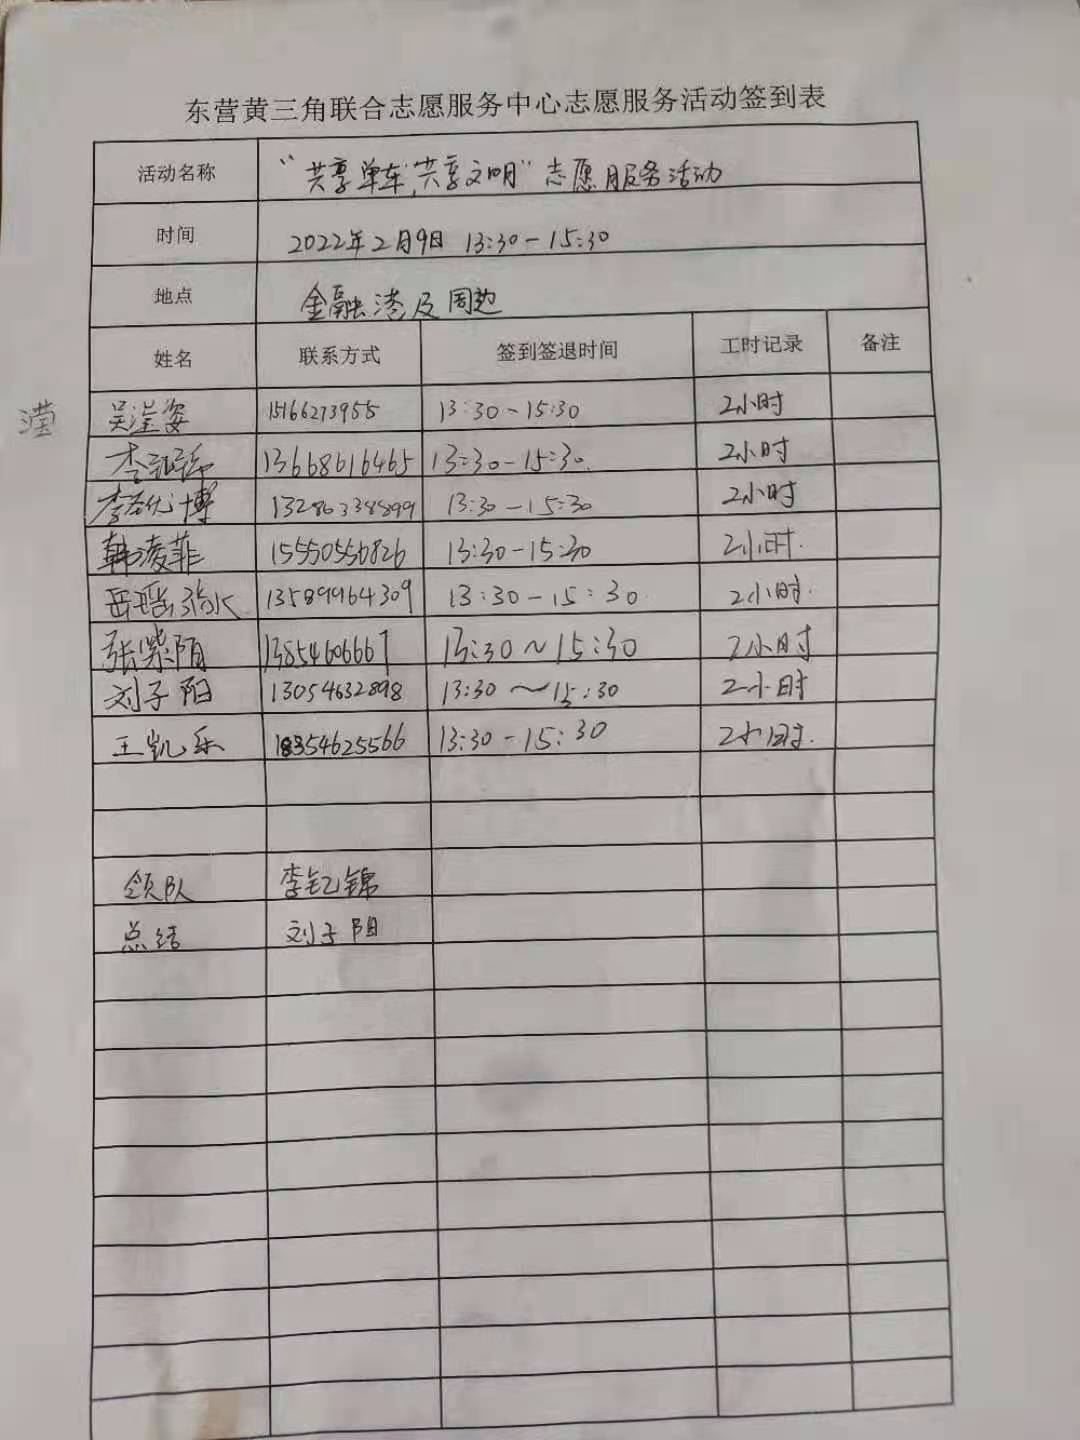 东营黄三角联合志愿服务中心志愿服务活动签到表
活动名称 “共享单车,共享文明”志愿服务活动
时间 2022年2月9日 13:30-15:30
地点 金融港及周边
姓名 联系方式 签到签退时间 工时记录 备注
滢
吴滢姿 15166273955 13:30-15:30 2小时
李 13668616465 13:30-15:30. 2小时
李 博 13286338899 13:30-15:30 2小时
韩凌菲 15550550826 13:30-15:30 2小时.
岳瑶 13589964309 13:30-15:30. 2小时.
张紫陌 13854606667 13:30~15:30 2小时
刘子阳 13054632898 13:30~15:30 2小时
王凯乐 18354625566 13:30-15:30 2小时.
领队 李钇锦
总结 刘子阳